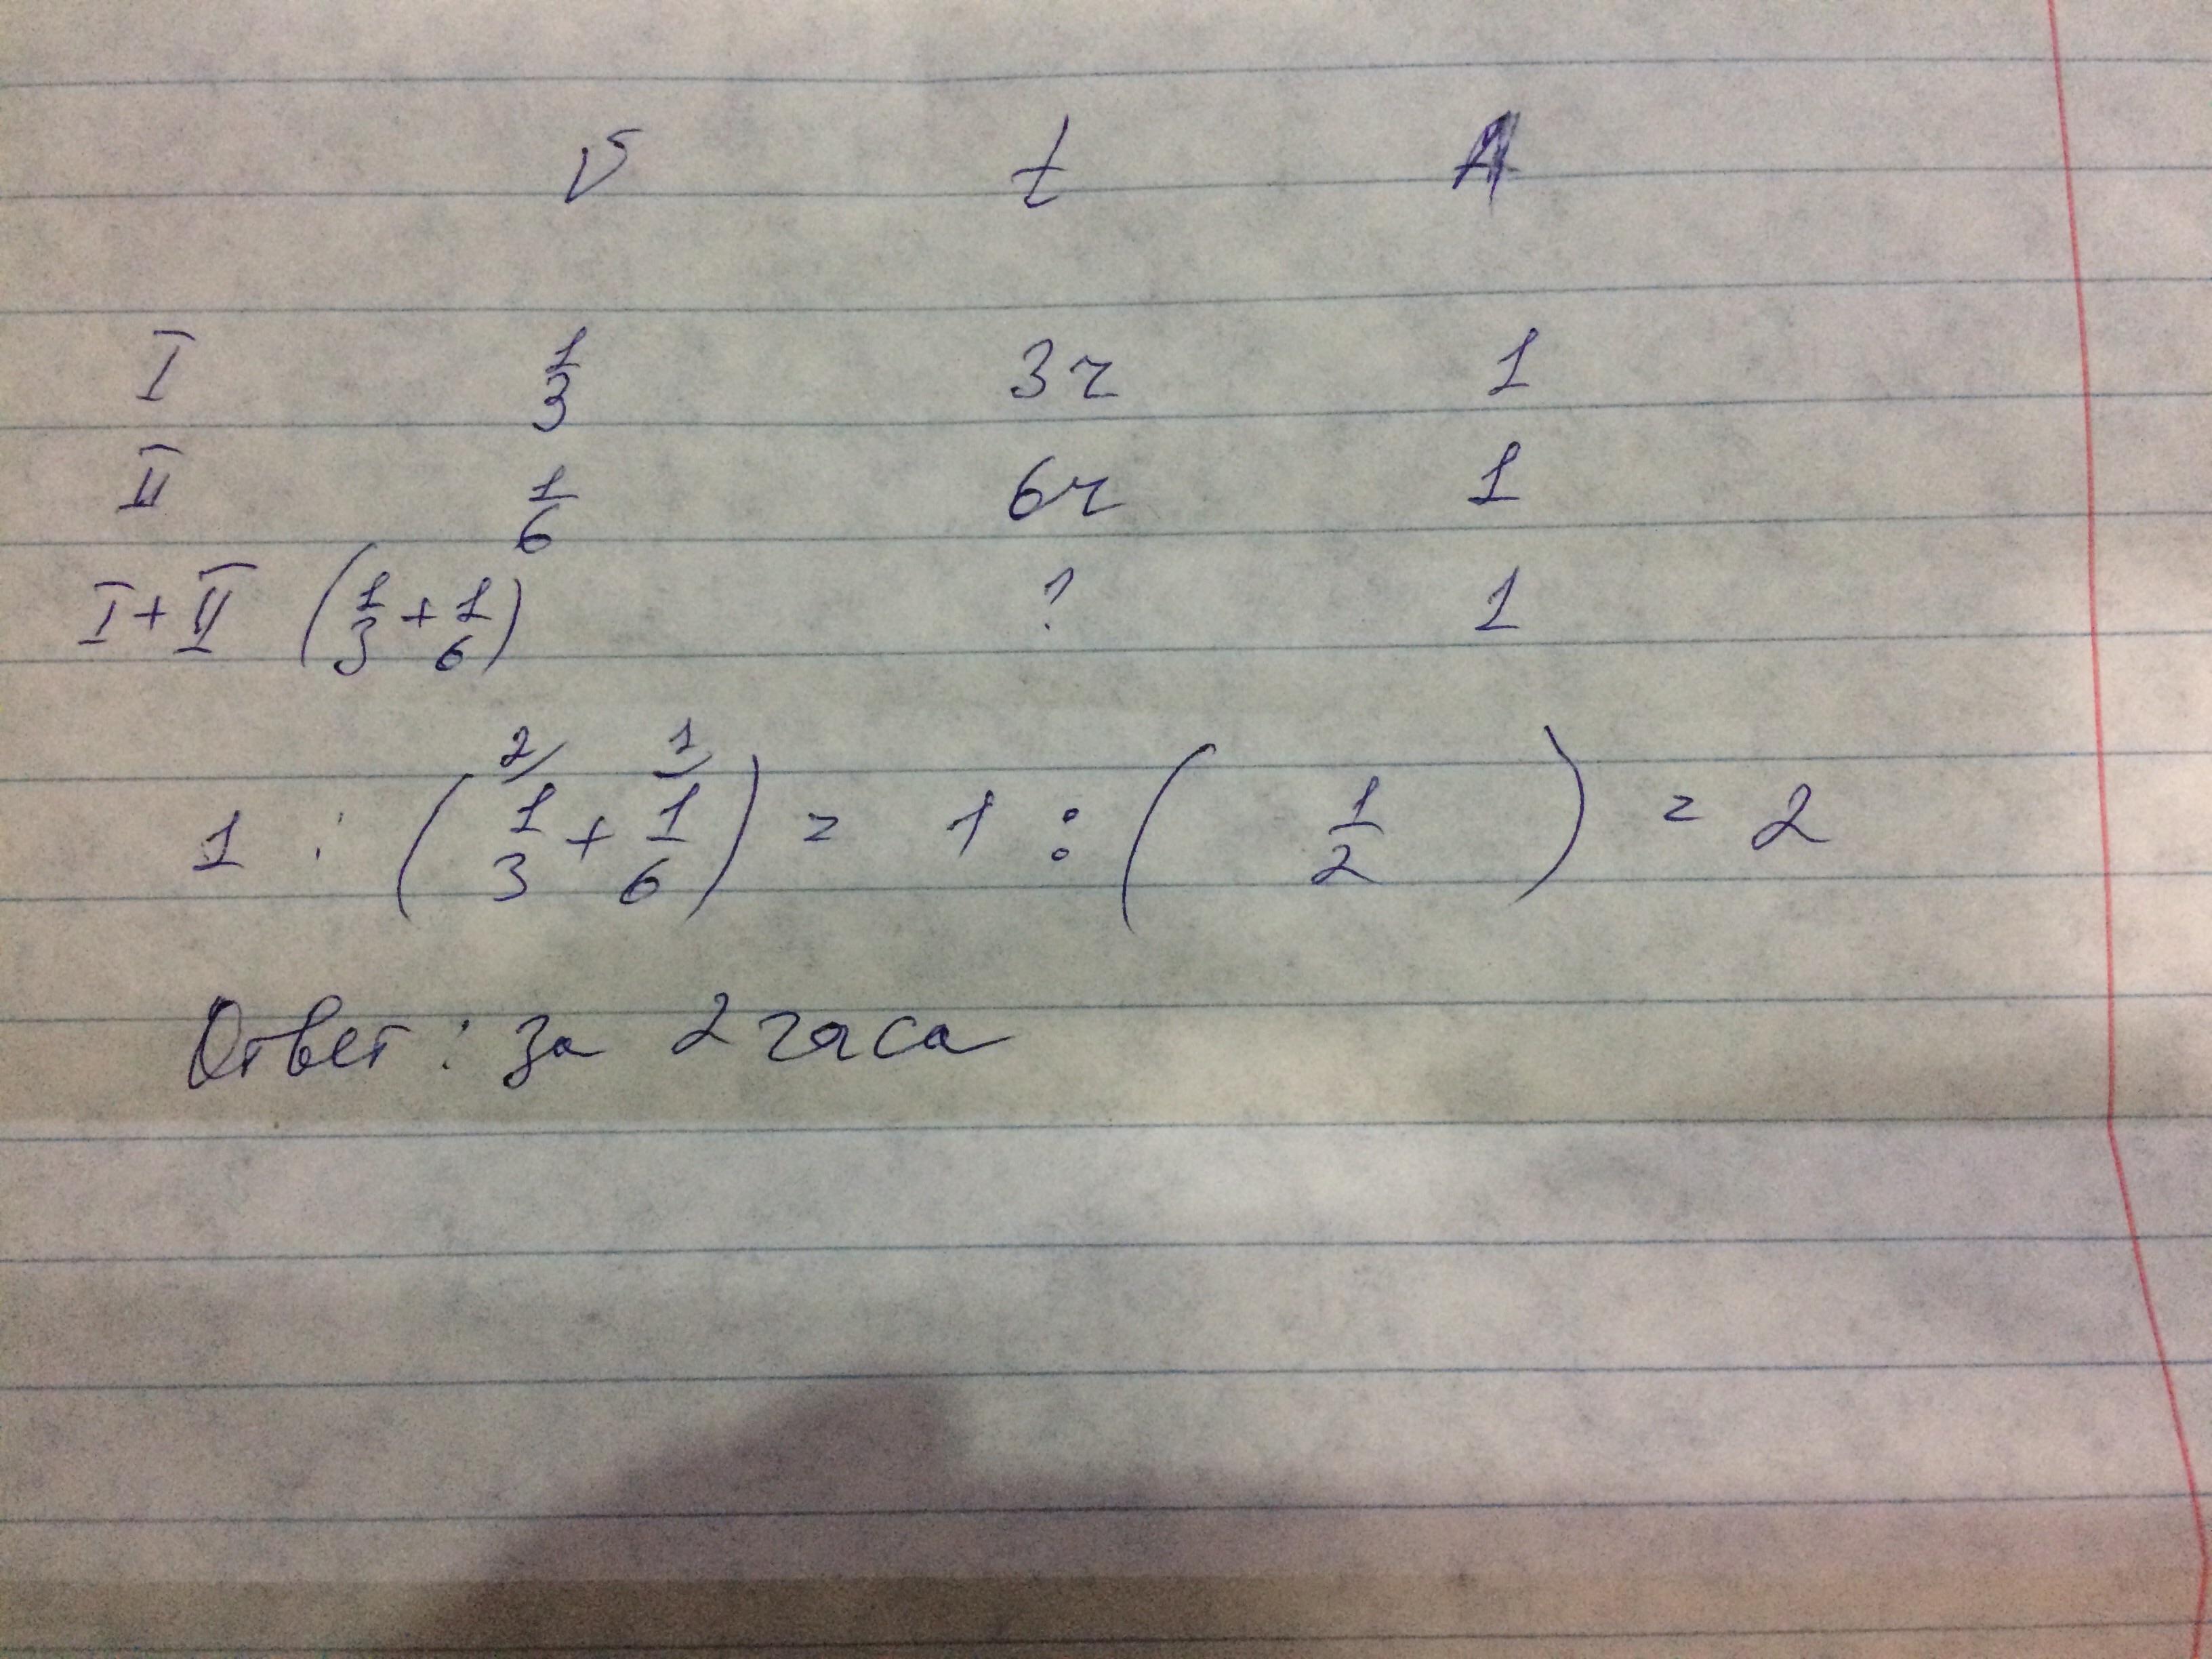 v t A
I 1/3 3ч 1
II 1/6 6ч 1
I+II (1/3+1/6) ? 1
1 : (2/ 1/3 + 1/ 1/6) = 1 : (1/2) = 2
Ответ: за 2 часа